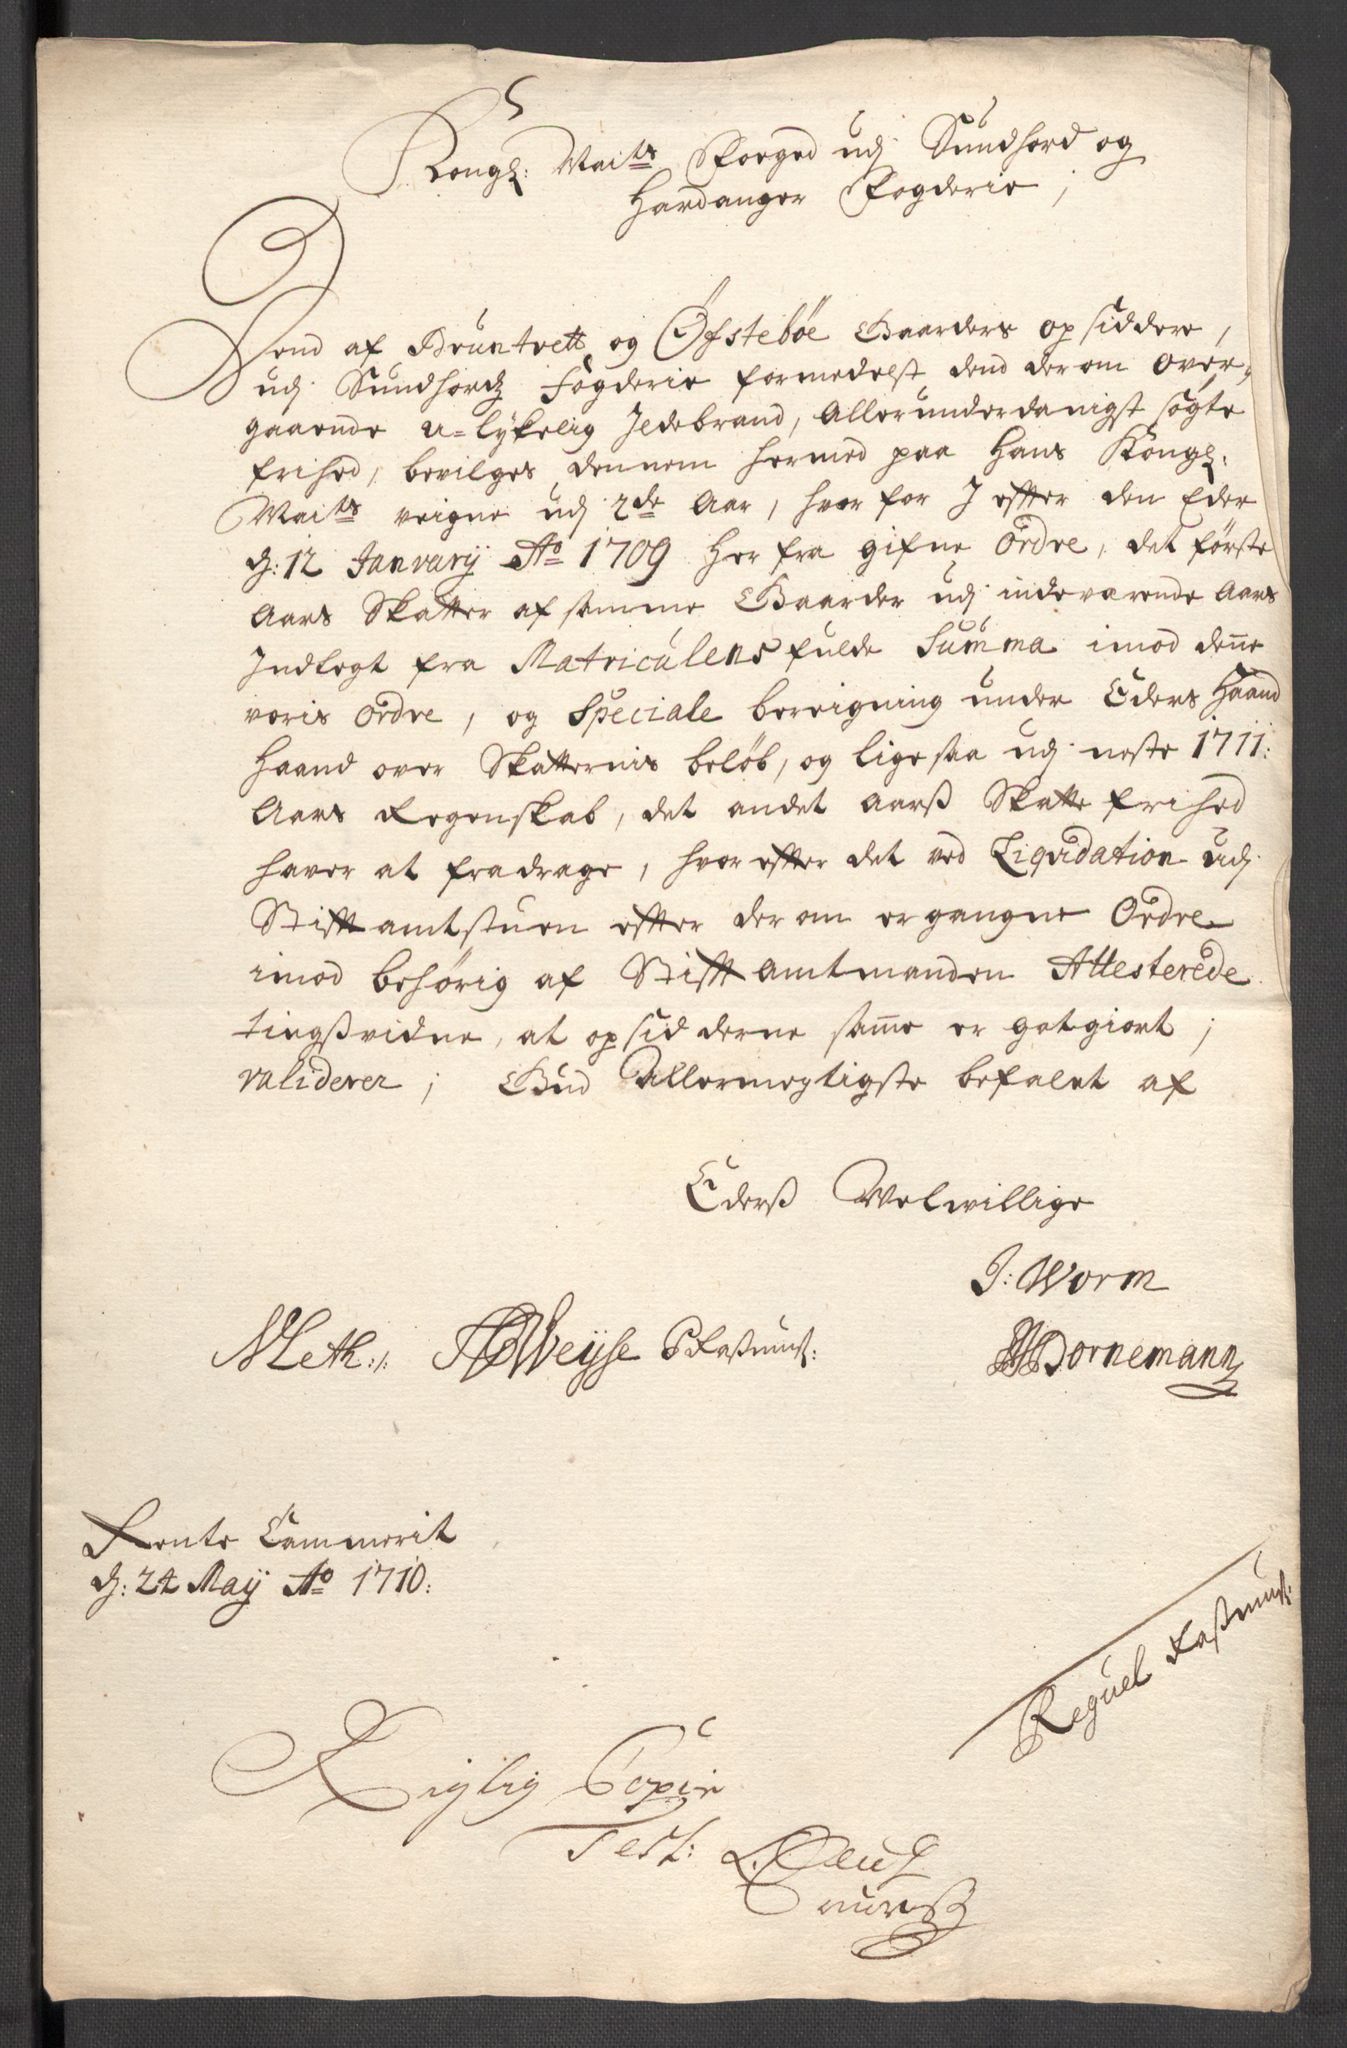 Kongl: Maits Foeged udj Sundhord og
Hardanger Fogderie;
Dend af Bruntvett og Øfstebøe Gaarders opsiddere,
udj Sundhordz Fogderie formedelst dend derom over-
gaaende u-lykelig Ildebrand, allerunderdanigst søgte
frihed, bevilges dennem hermed paa Hans Kongl:
Maits veigne udj 2de Aar, hvor for I efter den Eder
d: 12 Janvarij Ao 1709 her fra gifne Ordre, det første
Aars Skatter af samme Gaarder udj indeværende Aars
Indtegt fra Matriculens fulde Summa imod denne
voris Ordre, og Speciale bereigning under Eders Haand
Haand over Skatternis beløb, og ligesaa udj neste 1711:
Aars Regenskab, det andet aarß Skatte frihed
haver at fradrage, hvor efter det ved Liqvidation udj
Stiftamtstuen efter derom ergangne Ordre
imod behørig af Stiftamtmanden Attesterede
tingßvidne, at opsidderne samme er gotgiort;
validerer; Gud Allermegtigste befalet af
Ederß Velwillige
J: Worm
Meth:/: Weyse P Raßmuß:
Bornemann
Rente Cammerit
d: 24 Maij Ao 1710:
Reguel Raßmuß:
Rigtig Copie
Test: